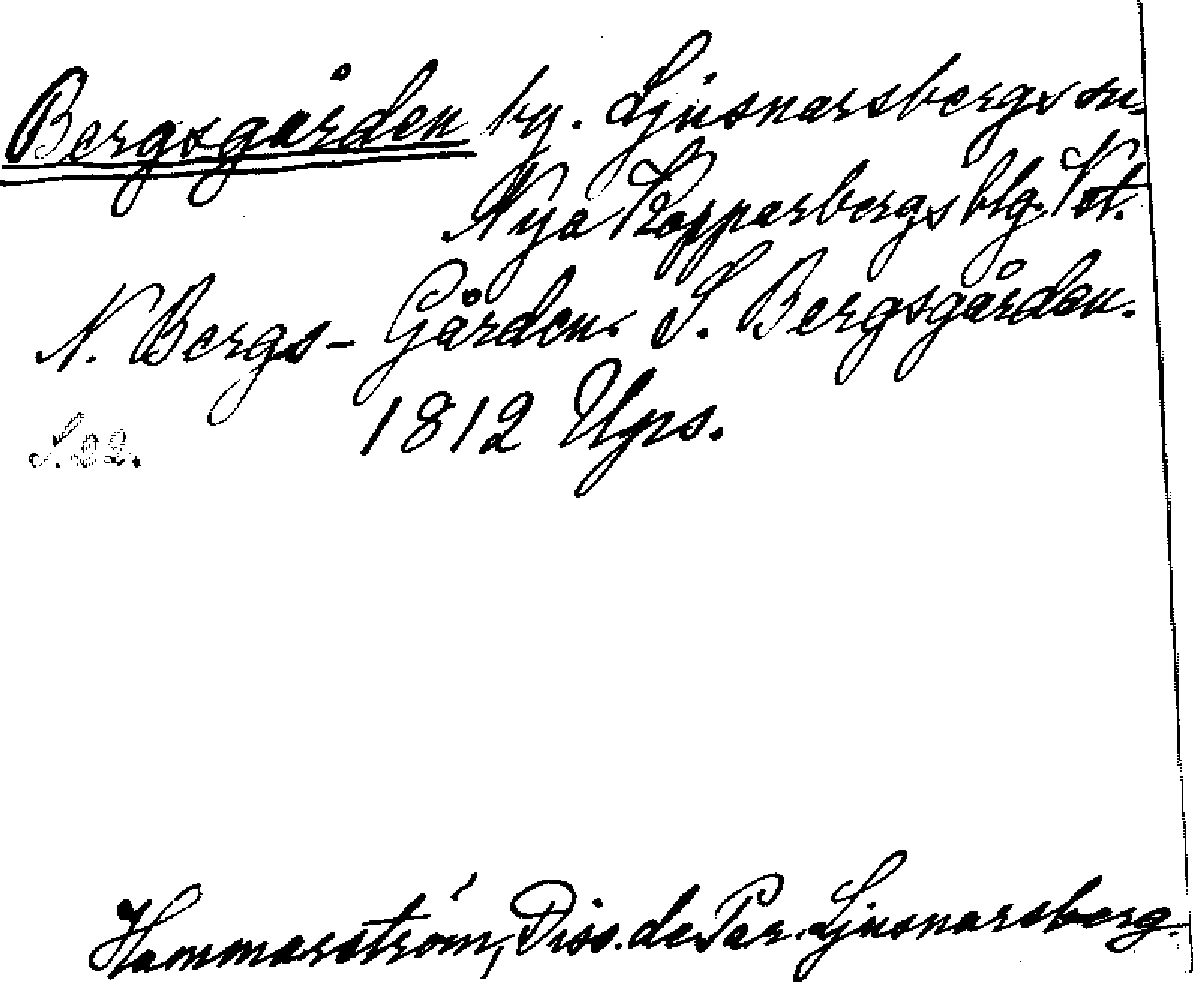 Bergsgården by. Ljusnarsbergs sn
Nya Kopparbergs blg. Vst.
N. Bergs-Gården. S. Bergsgården.
1812 Ups.
Hammarström, Diss. de Par. Ljusnarsberg.